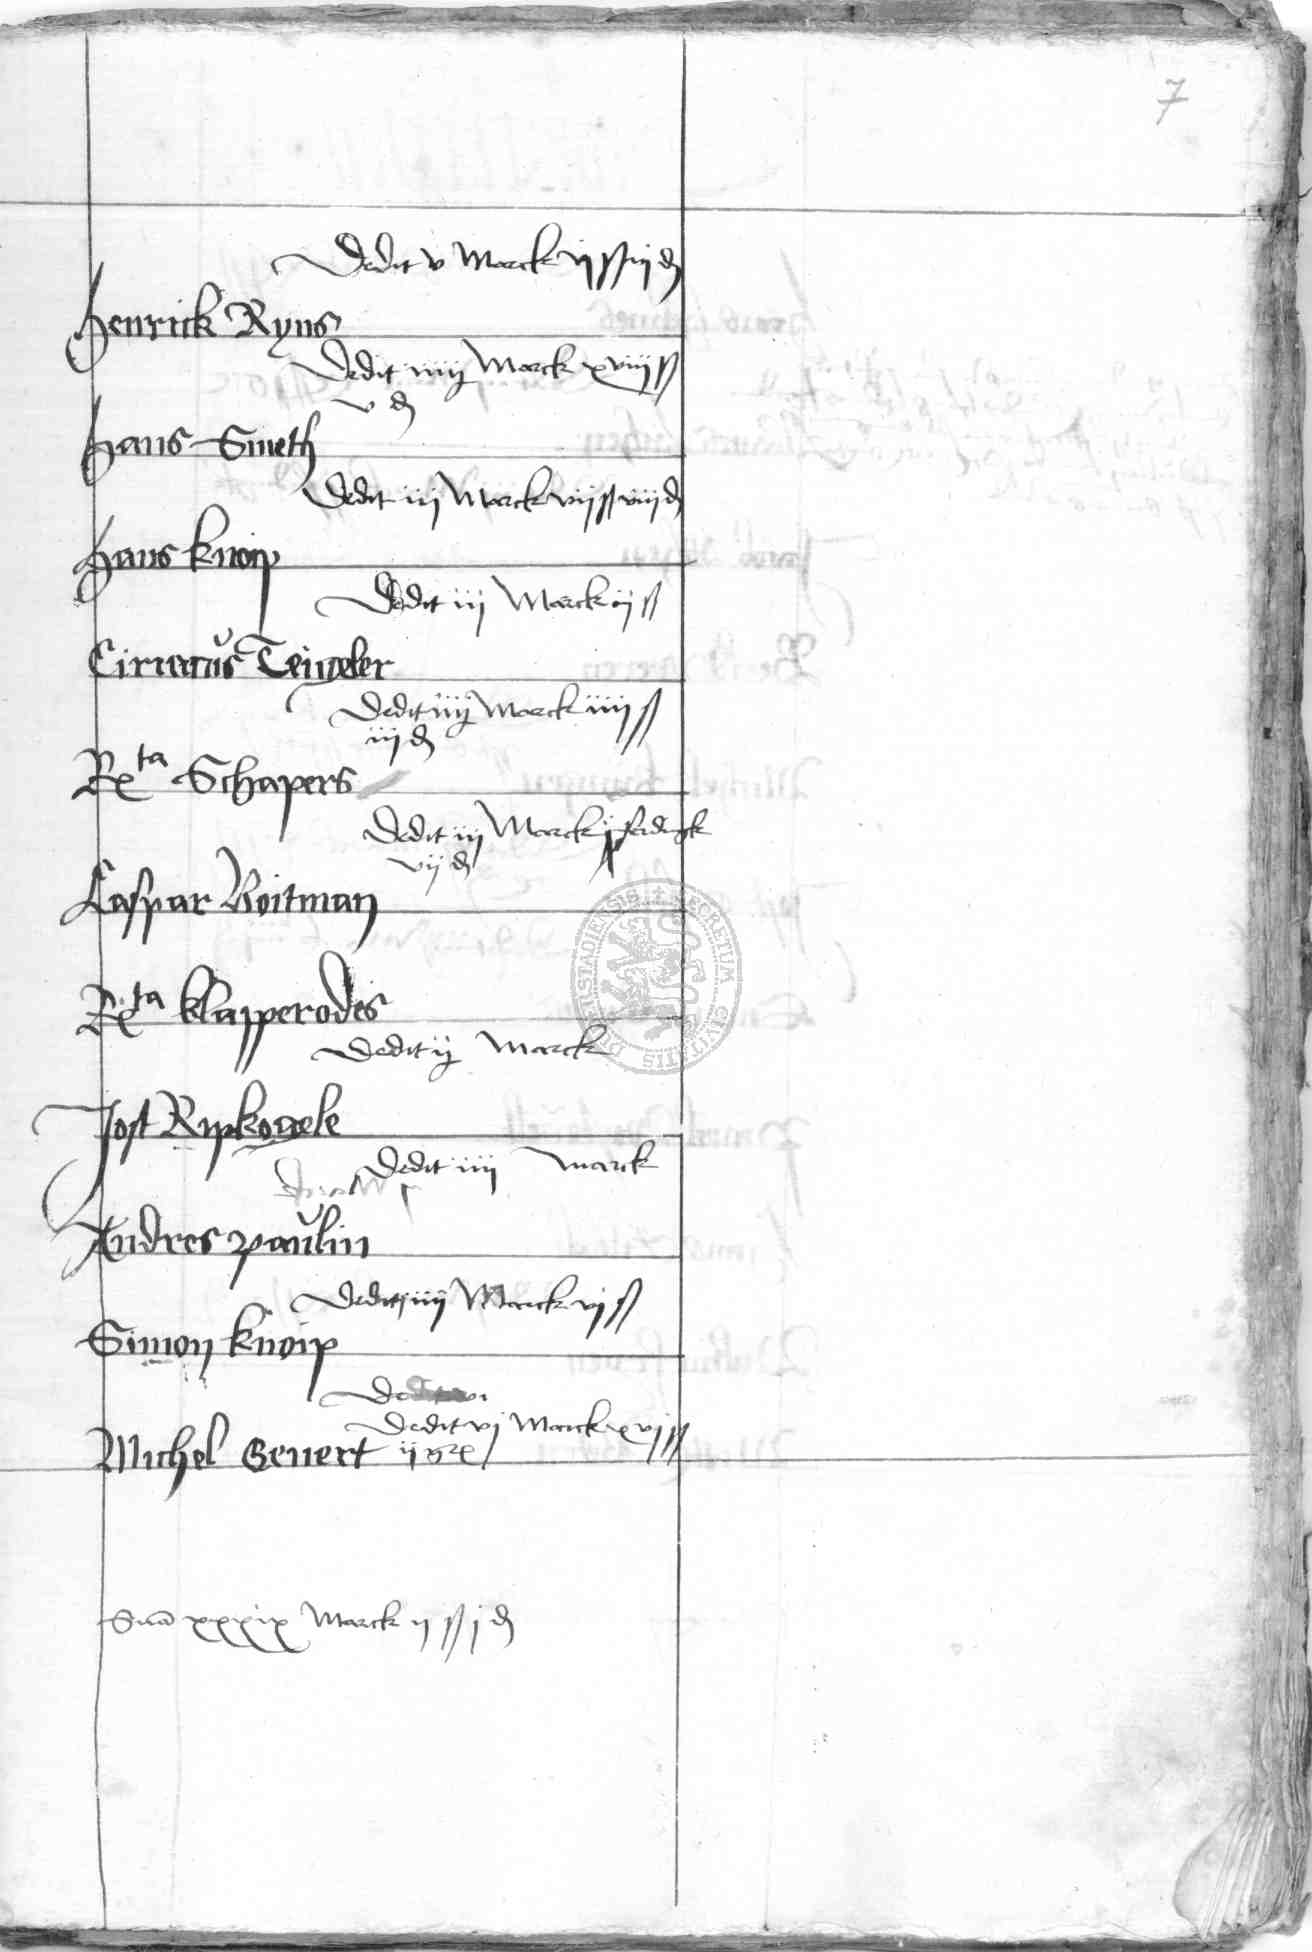 7
Dedit v Marck vj ß iij d
Henrick Ryns
Dedit iiij Marck xviij ß
v d
Hans Smeth
Dedit iij Marck vij ß viij d
Hans knoip
Dedit iij Marck ij ß
Ciriacus Teigeler
Dedit iiij Marck iiij ß
iij d
Rta Schapers
Dedit iij Marck j ferdigk
vij d
Caspar Boitman
Rta klapperodes
Dedit ij Marck
Jost Ripkogele
Dedit iiij Marck
Andres paulin
Dedit iiij Marck vj ß
Simon knoip
Dedit vj
Dedit vj Marck xvj ß
Michel Gevert ij
Sma xxxix Marck ij ß j d
SECRETUM CIVITATIS DUDERSTADIENSIS